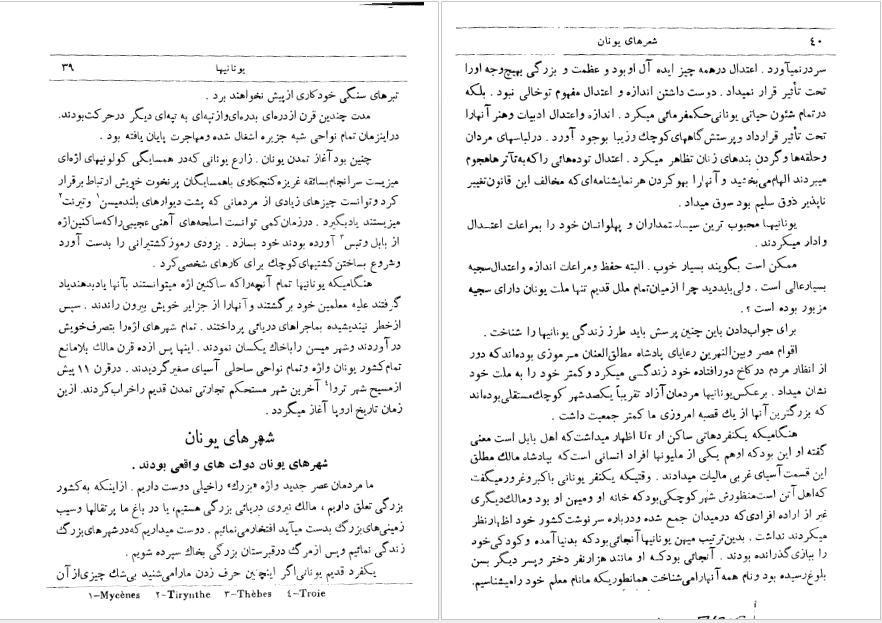 یونانیها ۳۹
تبرهای سنگی خودکاری ازپیش نخواهند برد .
مدت چندین قرن ازدره‌ای بدره‌ای وازتپه‌ای به تپه‌ای دیگر درحرکت‌بودند.
دراینزمان تمام نواحی شبه جزیره اشغال شده ومهاجرت پایان یافته بود .
چنین بودآغاز تمدن یونان . زارع یونانی که‌در همسایگی کولونیهای اژه‌ای
میزیست سرانجام‌بسائقه غریزه کنجکاوی باهمسایگان پرنخوت خویش ارتباط برقرار
کرد وتوانست چیزهای زیادی از مردمانی که پشت دیوارهای بلندمیسن۱ وتیرنت۲
میزیستند یادبگیرد . درزمان‌کمی توانست اسلحه‌های آهنی عجیبی‌راکه‌ساکنین‌اژه
از بابل وتبس۳ آورده بودند خود بسازد . بزودی رموزکشتیرانی را بدست آورد
وشروع بساختن‌کشتیهای‌کوچك برای کارهای شخصی‌کرد .
هنگامیکه یونانیها تمام آنچه‌راکه ساکنین اژه میتوانستند بآنها یادبدهندیاد
گرفتند علیه معلمین خود برگشتند وآنهارا از جزایر خویش بیرون راندند . سپس
ازخطر نیندیشیده بماجراهای دریائی پرداختند . تمام شهرهای اژه‌را بتصرف‌خویش
درآوردند وشهر میسن راباخاك یکسان نمودند . اینها پس ازده قرن مالك بلامانع
تمام‌کشور یونان واژه وتمام نواحی ساحلی آسیای صغیرگردیدند . درقرن ۱۱ پیش
ازمسیح شهر تروا۴ آخرین شهر مستحکم تجارتی تمدن قدیم راخراب‌کردند. ازین
زمان تاریخ اروپا آغاز میگردد .
شهرهای یونان
شهرهای یونان دولت های واقعی بودند .
ما مردمان عصر جدید واژه «بزرگ» راخیلی دوست داریم . ازاینکه به‌کشور
بزرگی تعلق داریم ، مالك نیروی دریائی بزرگی هستیم، یا در باغ ما پرتقالها وسیب
زمینی‌های‌بزرگ بدست میآید افتخارمی‌نمائیم . دوست میداریم‌که‌درشهرهای‌بزرگ
زندگی نمائیم وپس ازمرگ درقبرستان بزرگی بخاك سپرده شویم .
یکفرد قدیم یونانی‌اگر اینچنین حرف زدن مارامی‌شنید بی‌شك چیزی‌ازآن
۱-Mycènes ۲-Tirynthe ۳-Thèbes ٤-Troie
شهرهای یونان ٤٠
سردرنمیآورد . اعتدال درهمه چیز ایده آل اوبود و عظمت و بزرگی بهیچ‌وجه اورا
تحت تأثیر قرار نمیداد . دوست داشتن اندازه و اعتدال مفهوم توخالی نبود . بلکه
درتمام شئون حیاتی یونانی‌حکمفرمائی میکرد . اندازه واعتدال ادبیات وهنر آنهارا
تحت تأثیر قرارداد وپرستش‌گاههای‌کوچك وزیبا بوجود آورد . درلباسهای مردان
وحلقه‌ها وگردن بندهای زنان تظاهر میکرد . اعتدال توده‌هائی راکه‌به‌تآترهاهجوم
میبردند الهام‌می‌بخشید و آنهارا بهوکردن هرنمایشنامه‌ای‌که مخالف این قانون‌تغییر
ناپذیر ذوق سلیم بود سوق میداد .
یونانیها محبوب ترین سیاستمداران و پهلوانان خود را بمراعات اعتدال
وادار میکردند .
ممکن است بگویند بسیار خوب . البته حفظ ومراعات اندازه واعتدال‌سجیه
بسیارعالی است . ولی‌بایددید چرا ازمیان‌تمام ملل قدیم تنها ملت یونان دارای سجیه
مزبور بوده است ؟ .
برای جواب‌دادن باین چنین پرسش باید طرز زندگی یونانیهارا شناخت .
اقوام مصر وبین‌النهرین رعایای پادشاه مطلق‌العنان مرموزی بوده‌اندکه دور
از انظار مردم درکاخ دورافتاده خود زندگی میکرد وکمتر خود را به ملت خود
نشان میداد . برعکس‌یونانیها مردمان آزاد تقریباً یکصدشهر کوچك‌مستقلی‌بوده‌اند
که بزرگترین آنها از یك قصبه امروزی ما کمتر جمعیت داشت .
هنگامیکه یکنفردهاتی ساکن ار Ur اظهار میداشت‌که اهل بابل است معنی
گفته او این بودکه اوهم یکی از ملیونها افراد انسانی است‌که بپادشاه مالك مطلق
این قسمت آسیای غربی مالیات میدادند . وقتیکه یکنفر یونانی باکبروغرورمیگفت
که‌اهل آتن است‌منظورش شهرکوچکی‌بودکه خانه او ومیهن او بود ومالك‌دیگری
غیر از اراده افرادی‌که درمیدان جمع شده ودرباره سرنوشت‌کشور خود اظهارنظر
میکردند نداشت . بدین‌ترتیب میهن یونانیهاآنجائی‌بودکه بدنیاآمده وکودکی‌خود
را ببازی‌گذرانده بودند . آنجائی بودکه او مانند هزارنفر دختر وپسر دیگر بسن
بلوغ‌رسیده بود ونام همه آنهارامی‌شناخت همانطوریکه مانام معلم خود رامیشناسیم.